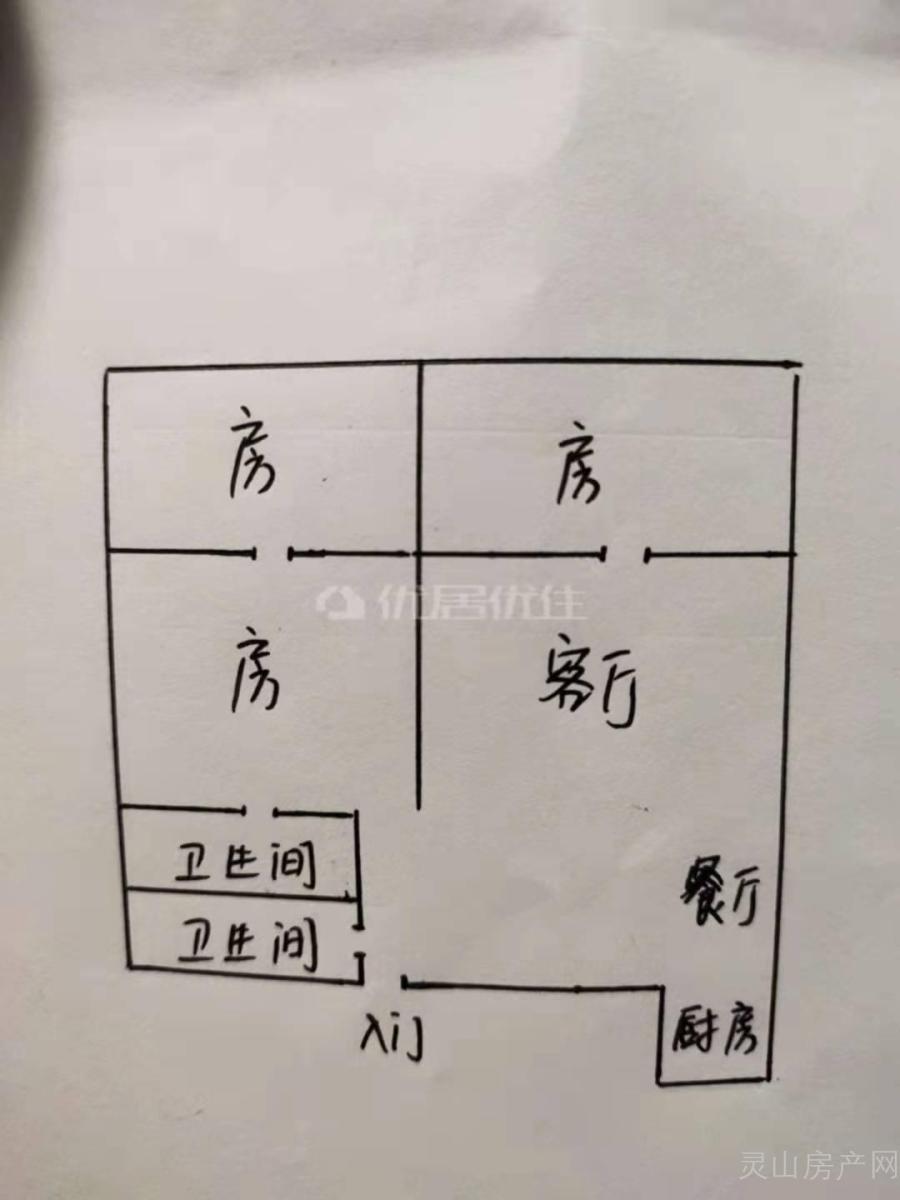 房
房
优居优住
房
客厅
卫生间
餐厅
卫生间
厨房
入门
灵山房产网